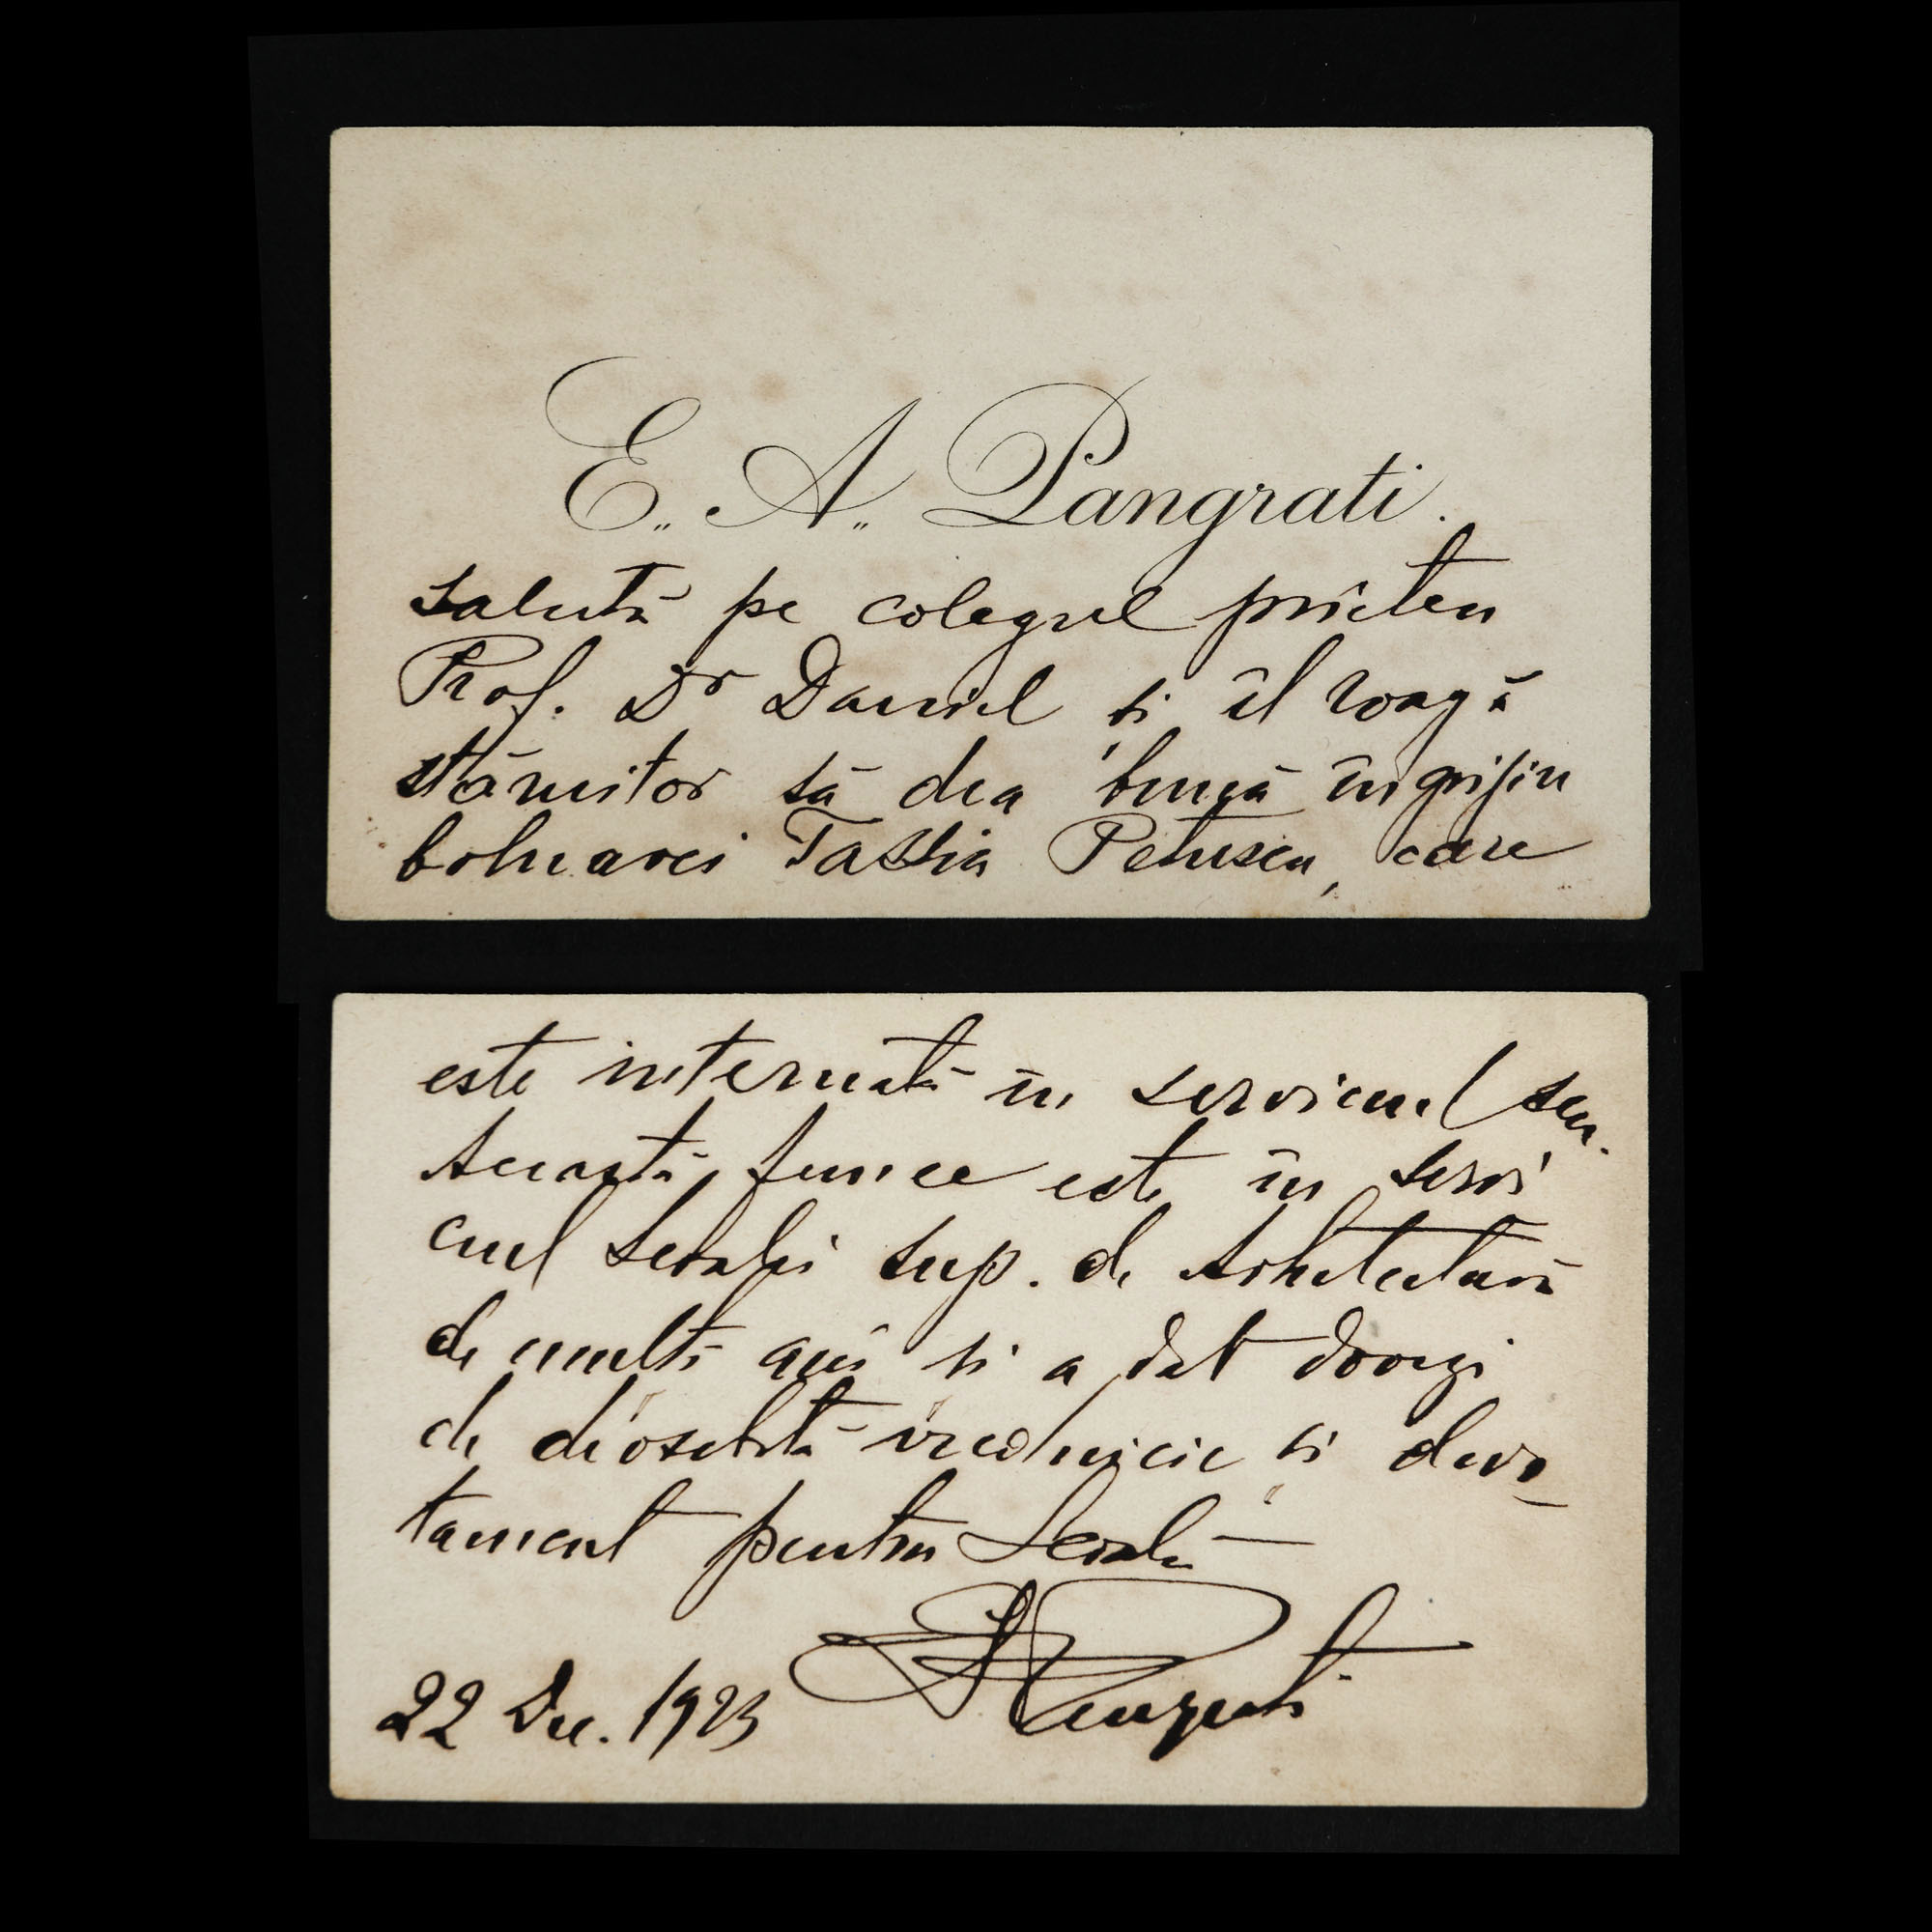 E. A. Pangrati.
salută pe colegul prieten
Prof. Dr Daniel și îl roagă
stăruitor să dea bună îngrijire
bolnavei Tassia Petrescu, care
este internată în serviciul seu.
Această femee este în servi
ciul Scoalei sup. de Arhitectură
de mulți ani și a dat dovezi
de deosebită vrednicie și devo_
tament pentru Scoală —
22 Dec. 1923 Pangrati